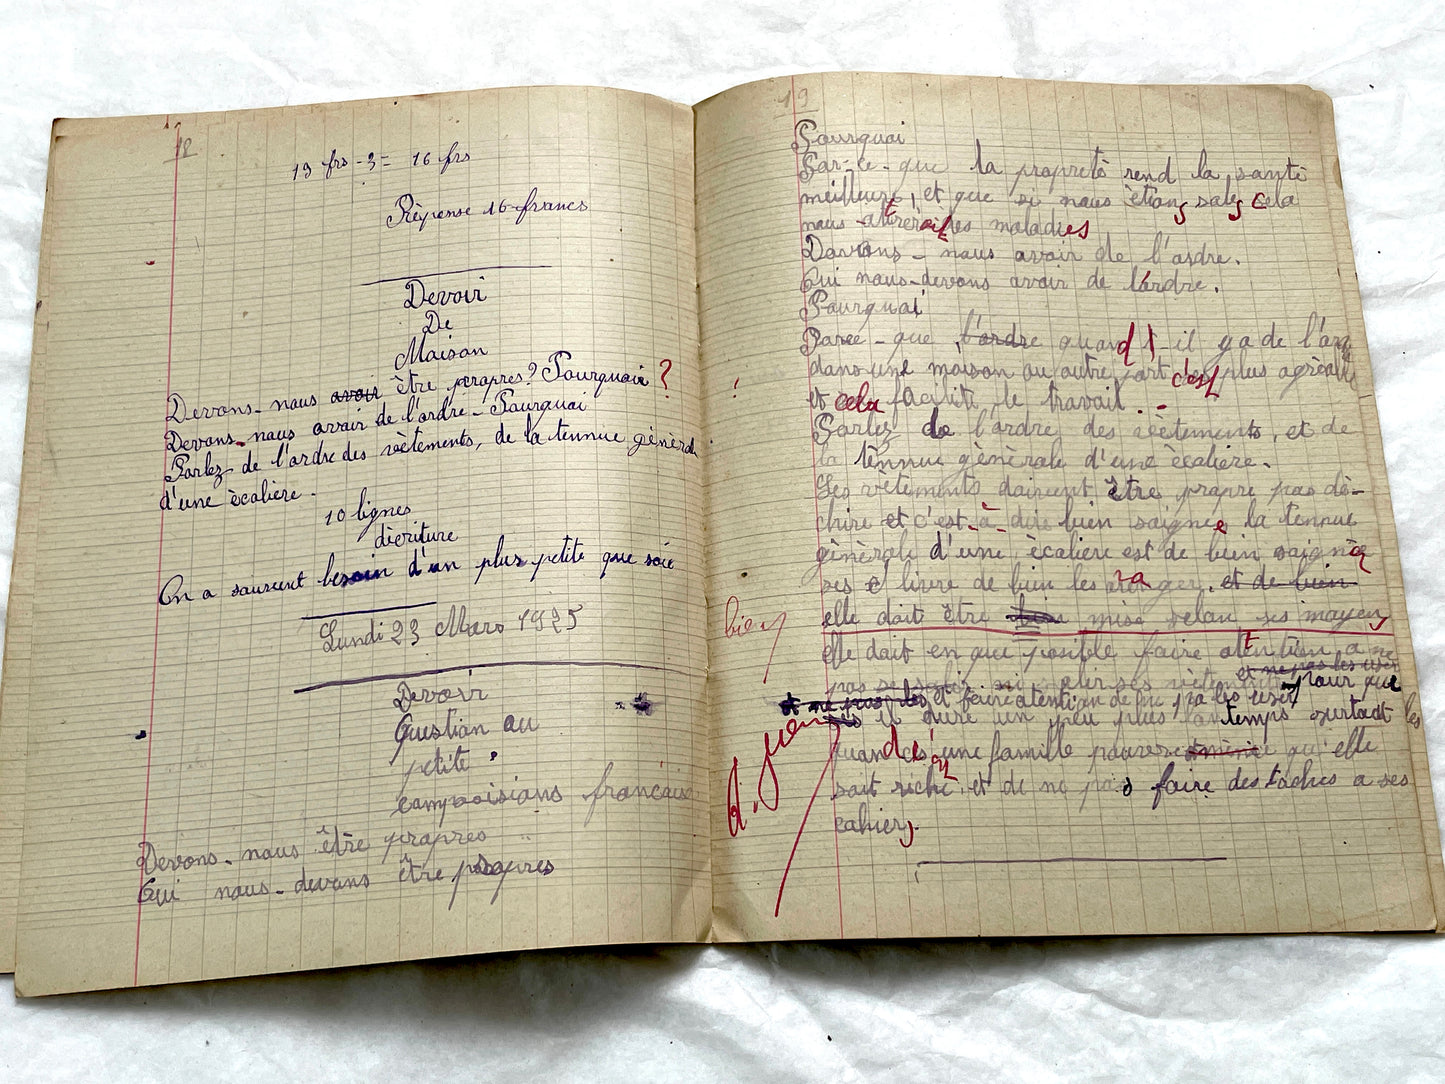 18
19 frs - 3 = 16 frs
Rèponse 16 francs
Devoir
De
Maison
Devons-nous avoir être propres? Pourquoi ?
Devons-nous avoir de l'ordre - Pourquoi
Parlez de l'ordre des vètements, de la tennue gènèrale
d'une ècolière.
10 lignes
dècriture
On a souvent besoin d'un plus petite que soie
Lundi 23 Mars 1925
Devoir
Question au
petite
française
Devons-nous être propres
Qui nous-devons être propres
19
Pourquoi
Par-ce-que la propretè rend la santè
meilleure, et que si nous ètions sales cela
nous attirerait des maladies
Devons-nous avoir de l'ordre.
Qui nous-devons avoir de l'ordre.
Pourquoi
Parce-que l'ordre quand t-il y a de l'ordre
dans une maison ou autre part c'est plus agrèable
et cela facilite le travail.
Parlez de l'ordre des vètements, et de
la tennue gènèrale d'une ècolière.
Les vètements doivent être propre pas dè-
chirè et c'est-à-dire bien soignee la tennue
gènèrale d'une ècolière est de bien soigner
ses livre de bien les ranger, et de bien
elle doit être mise selon ses moyens
bien
elle doit en que possible faire attention a ne
pas se salir ni ses vètements et ne pas les user pour que
et ne pas les et faire attention de ne pas les user
il dure un peu plus longtemps surtout les
quand c'est une famille pauvre qu'elle
soit riche et de ne pas faire des taches a ses
cahiers.